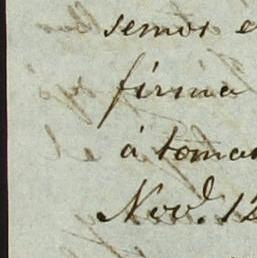 semos e
firma
á tomar
Nov.d 12